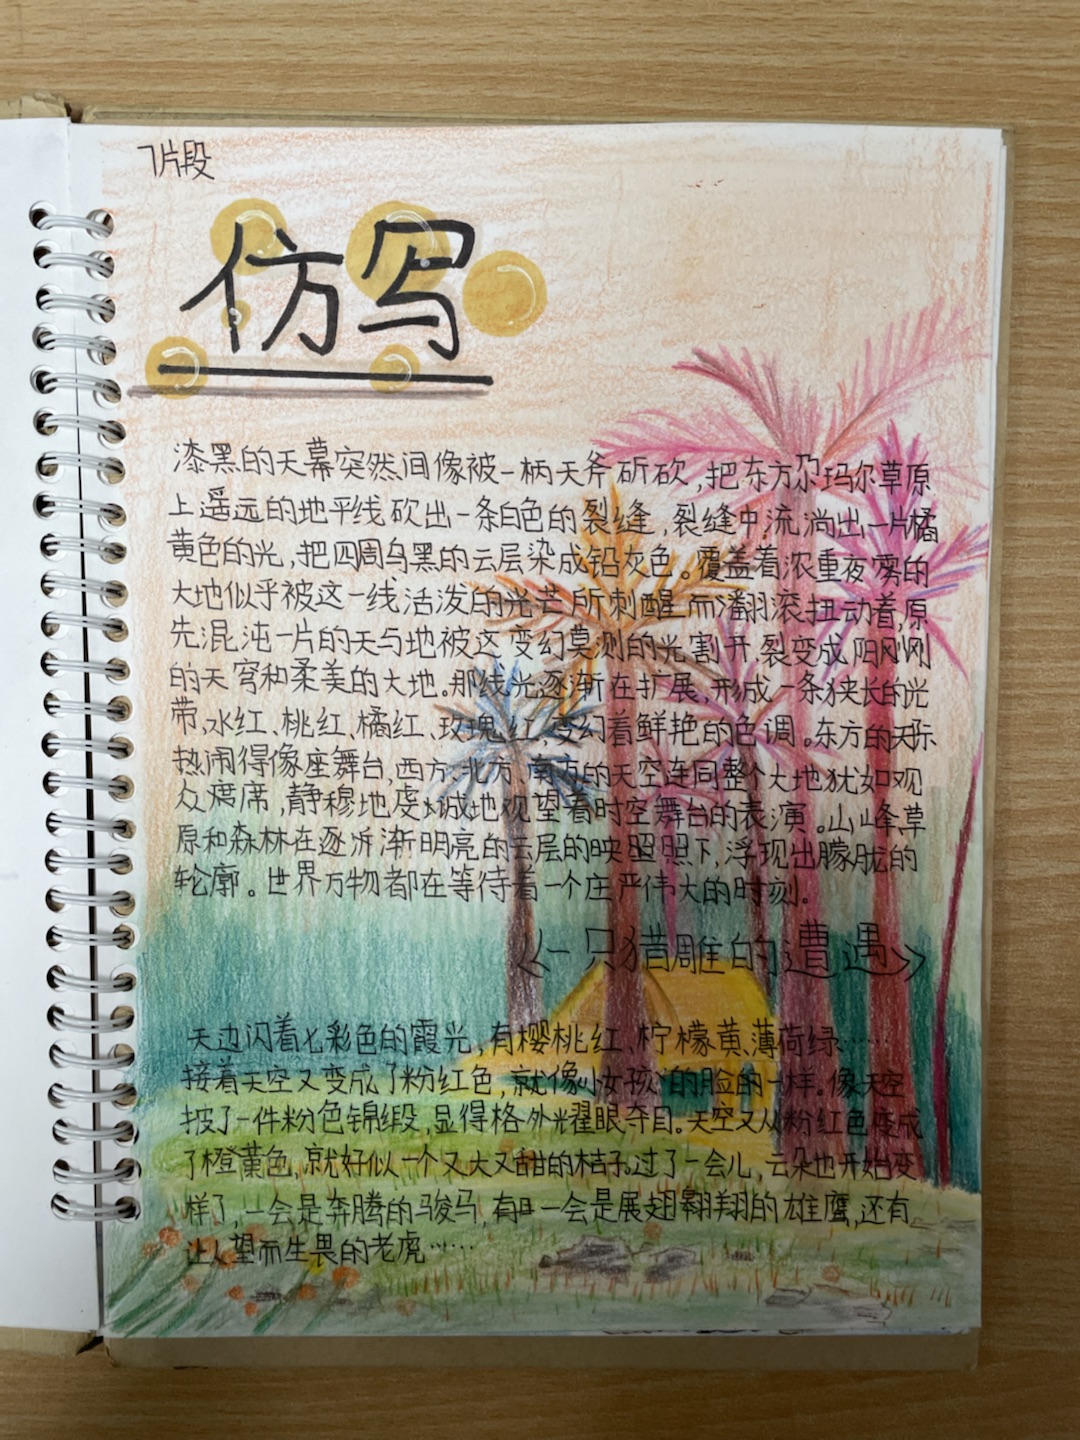 片段
仿写
漆黑的天幕突然间像被一柄天斧斫砍,把东方尕玛尔草原
上遥远的地平线砍出一条白色的裂缝,裂缝中流淌出一片橘
黄色的光,把四周乌黑的云层染成铅灰色。覆盖着浓重夜雾的
大地似乎被这一线活泼的光芒所刺醒而潘翻滚扭动着,原
先混沌一片的天与地被这变幻莫测的光割开,裂变成阳刚
的天穹和柔美的大地。那线光逐渐在扩展,形成一条狭长的光
带,水红、桃红、橘红、玫瑰红,变幻着鲜艳的色调。东方的天际
热闹得像座舞台,西方、北方、南方的天空连同整个大地犹如观
众席,静穆地虔诚地观望着时空舞台的表演。山峰草
原和森林在逐渐明亮的云层的映照下,浮现出朦胧的
轮廓。世界万物都在等待着一个庄严伟大的时刻。
<一只猎雕的遭遇>
天边闪着七彩色的霞光,有樱桃红、柠檬黄、薄荷绿……
接着天空又变成了粉红色,就像小女孩的脸的一样。像天空
披了一件粉色锦缎,显得格外光耀眼夺目。天空又从粉红色变成
了橙黄色,就好似一个又大又甜的桔子。过了一会儿,云朵也开始变
样了,一会是奔腾的骏马,有一会是展翅翱翔的雄鹰,还有
让人望而生畏的老虎……